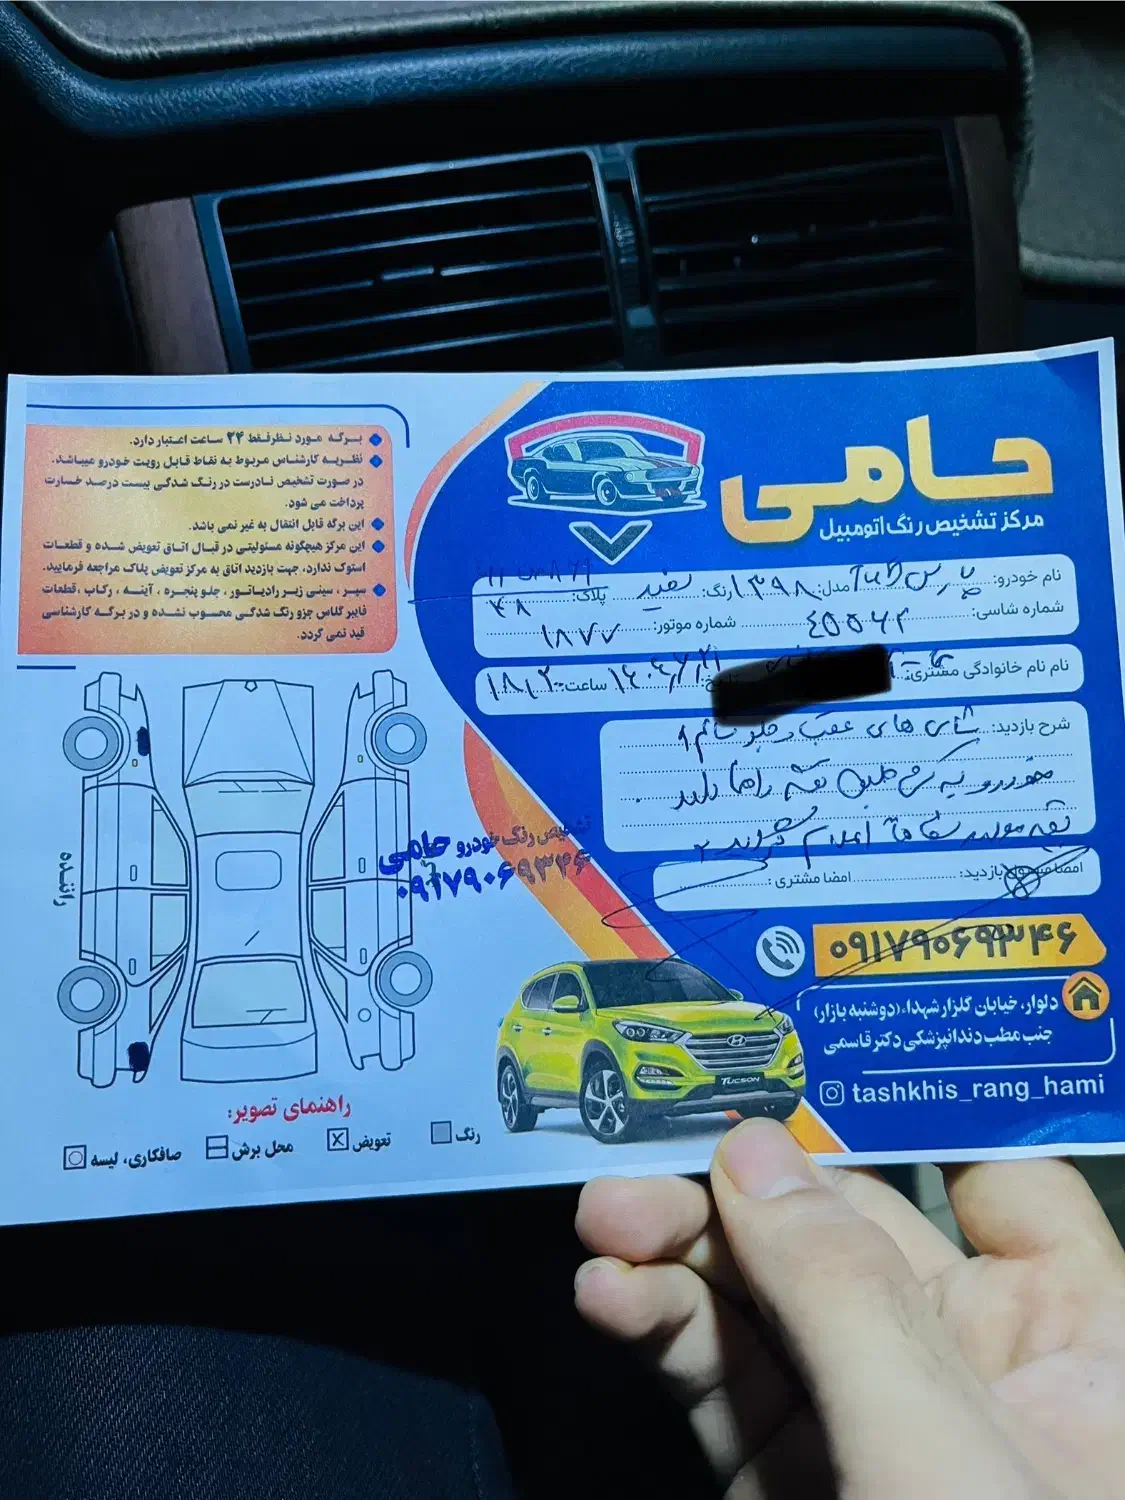 حامی
مرکز تشخیص رنگ اتومبیل
نام خودرو: پارس TU5 مدل: ۱۳۹۸ رنگ: سفید پلاک:
۴۸
شماره شاسی: شماره موتور: ۱۸۷۷
نام نام خانوادگی مشتری: تاریخ: ساعت:
شرح بازدید: شاسی های عقب و جلو سالم
خودرو یک طبق نقشه رنگ دارد
بقیه موارد سلامت اعلام گردید
امضا مسئول بازدید: امضا مشتری:
۰۹۱۷۹۰۶۹۳۴۶
دلوار، خیابان گلزار شهداء (دوشنبه بازار)
جنب مطب دندانپزشکی دکتر قاسمی
tashkhis_rang_hami
TUCSON
برگه مورد نظر فقط ۲۴ ساعت اعتبار دارد.
نظریه کارشناس مربوط به نقاط قابل رویت خودرو میباشد.
در صورت تشخیص نادرست در رنگ شدگی بیست درصد خسارت
پرداخت می شود.
این برگه قابل انتقال به غیر نمی باشد.
این مرکز هیچگونه مسئولیتی در قبال اتاق تعویض شده و قطعات
استوک ندارد، جهت بازدید اتاق به مرکز تعویض پلاک مراجعه فرمایید.
سپر، سینی زیر رادیاتور، جلو پنجره، آینه، رکاب، قطعات
فایبر گلاس جزو رنگ شدگی محسوب نشده و در برگه کارشناسی
قید نمی گردد.
راننده
تشخیص رنگ خودرو حامی
۰۹۱۷۹۰۶۹۳۴۶
راهنمای تصویر:
رنگ تعویض محل برش صافکاری، لیسه